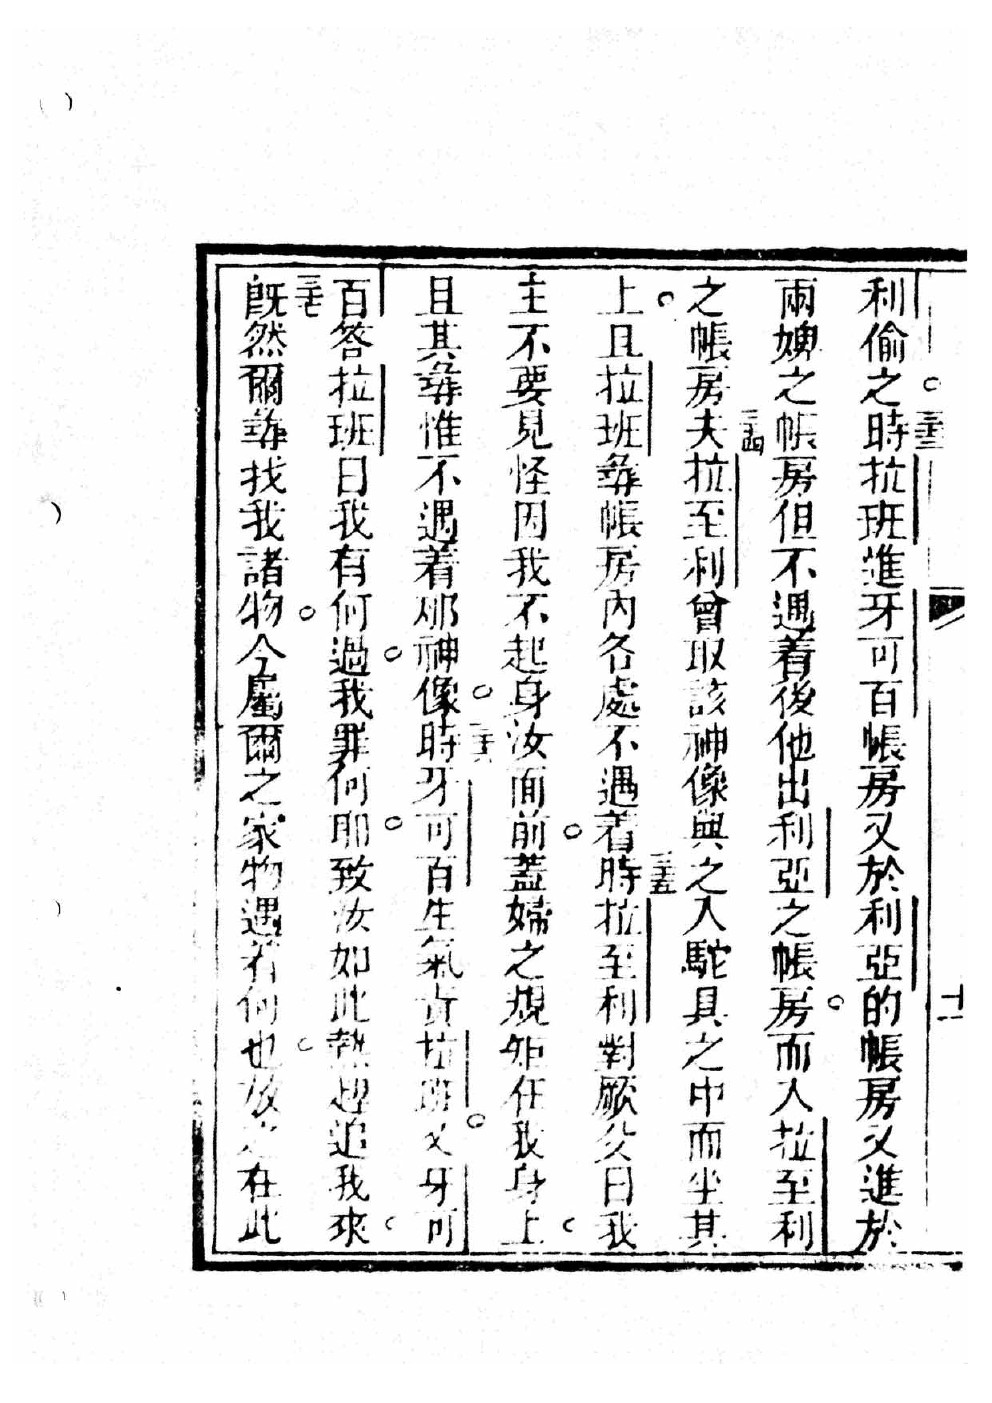 利偷之時三十三拉班進牙可百帳房又於利亞的帳房又進於
兩婢之帳房但不遇着後他出利亞之帳房而入拉至利
之帳房夫三十四拉至利曾取該神像與之入駝具之中而坐其
上且拉班彝帳房內各處不遇着時三十五拉至利對厥父曰我
主不要見怪因我不起身汝面前蓋婦之規矩在我身上
且其彝惟不遇着那神像時三十六牙可百生氣責拉班又牙可
百答拉班曰我有何過我罪何耶致汝如此熱趕追我來
三十七既然爾彝找我諸物今屬爾之家物遇着何也放之在此
十一